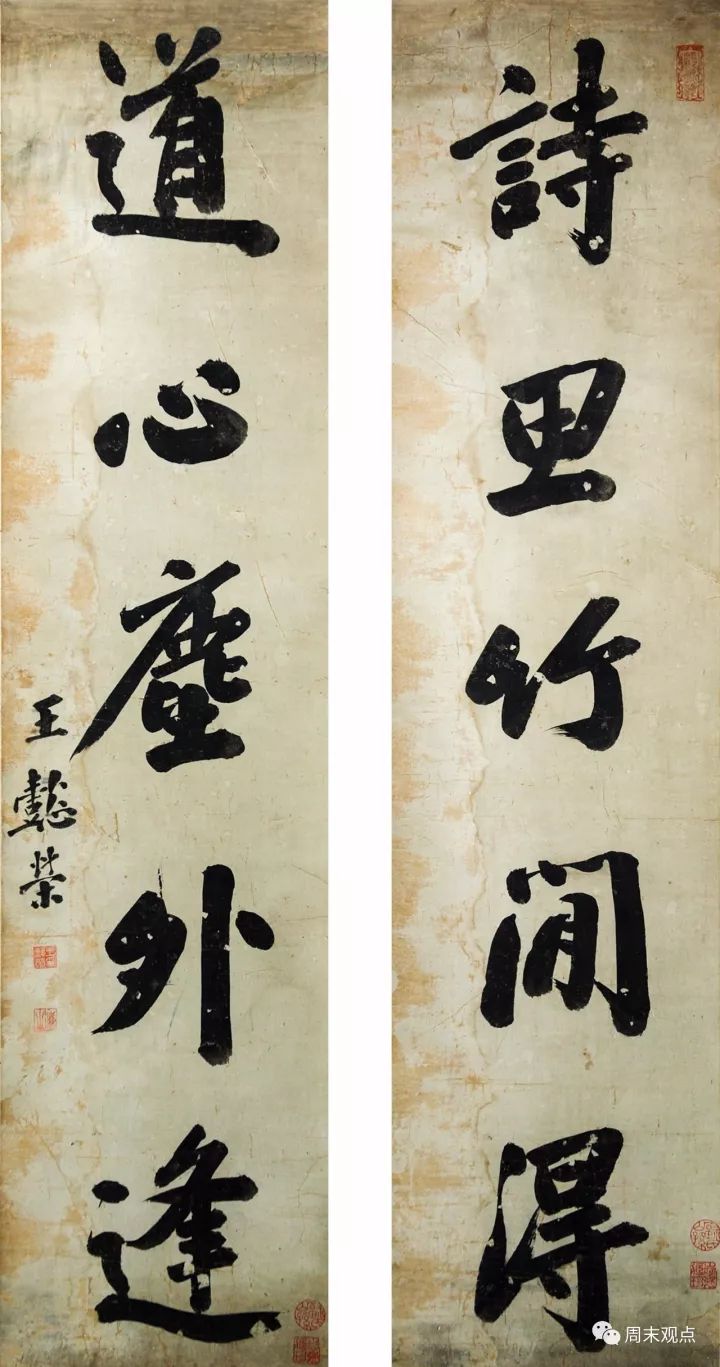 詩思竹閒得
道心塵外逢
王懿榮
周末观点